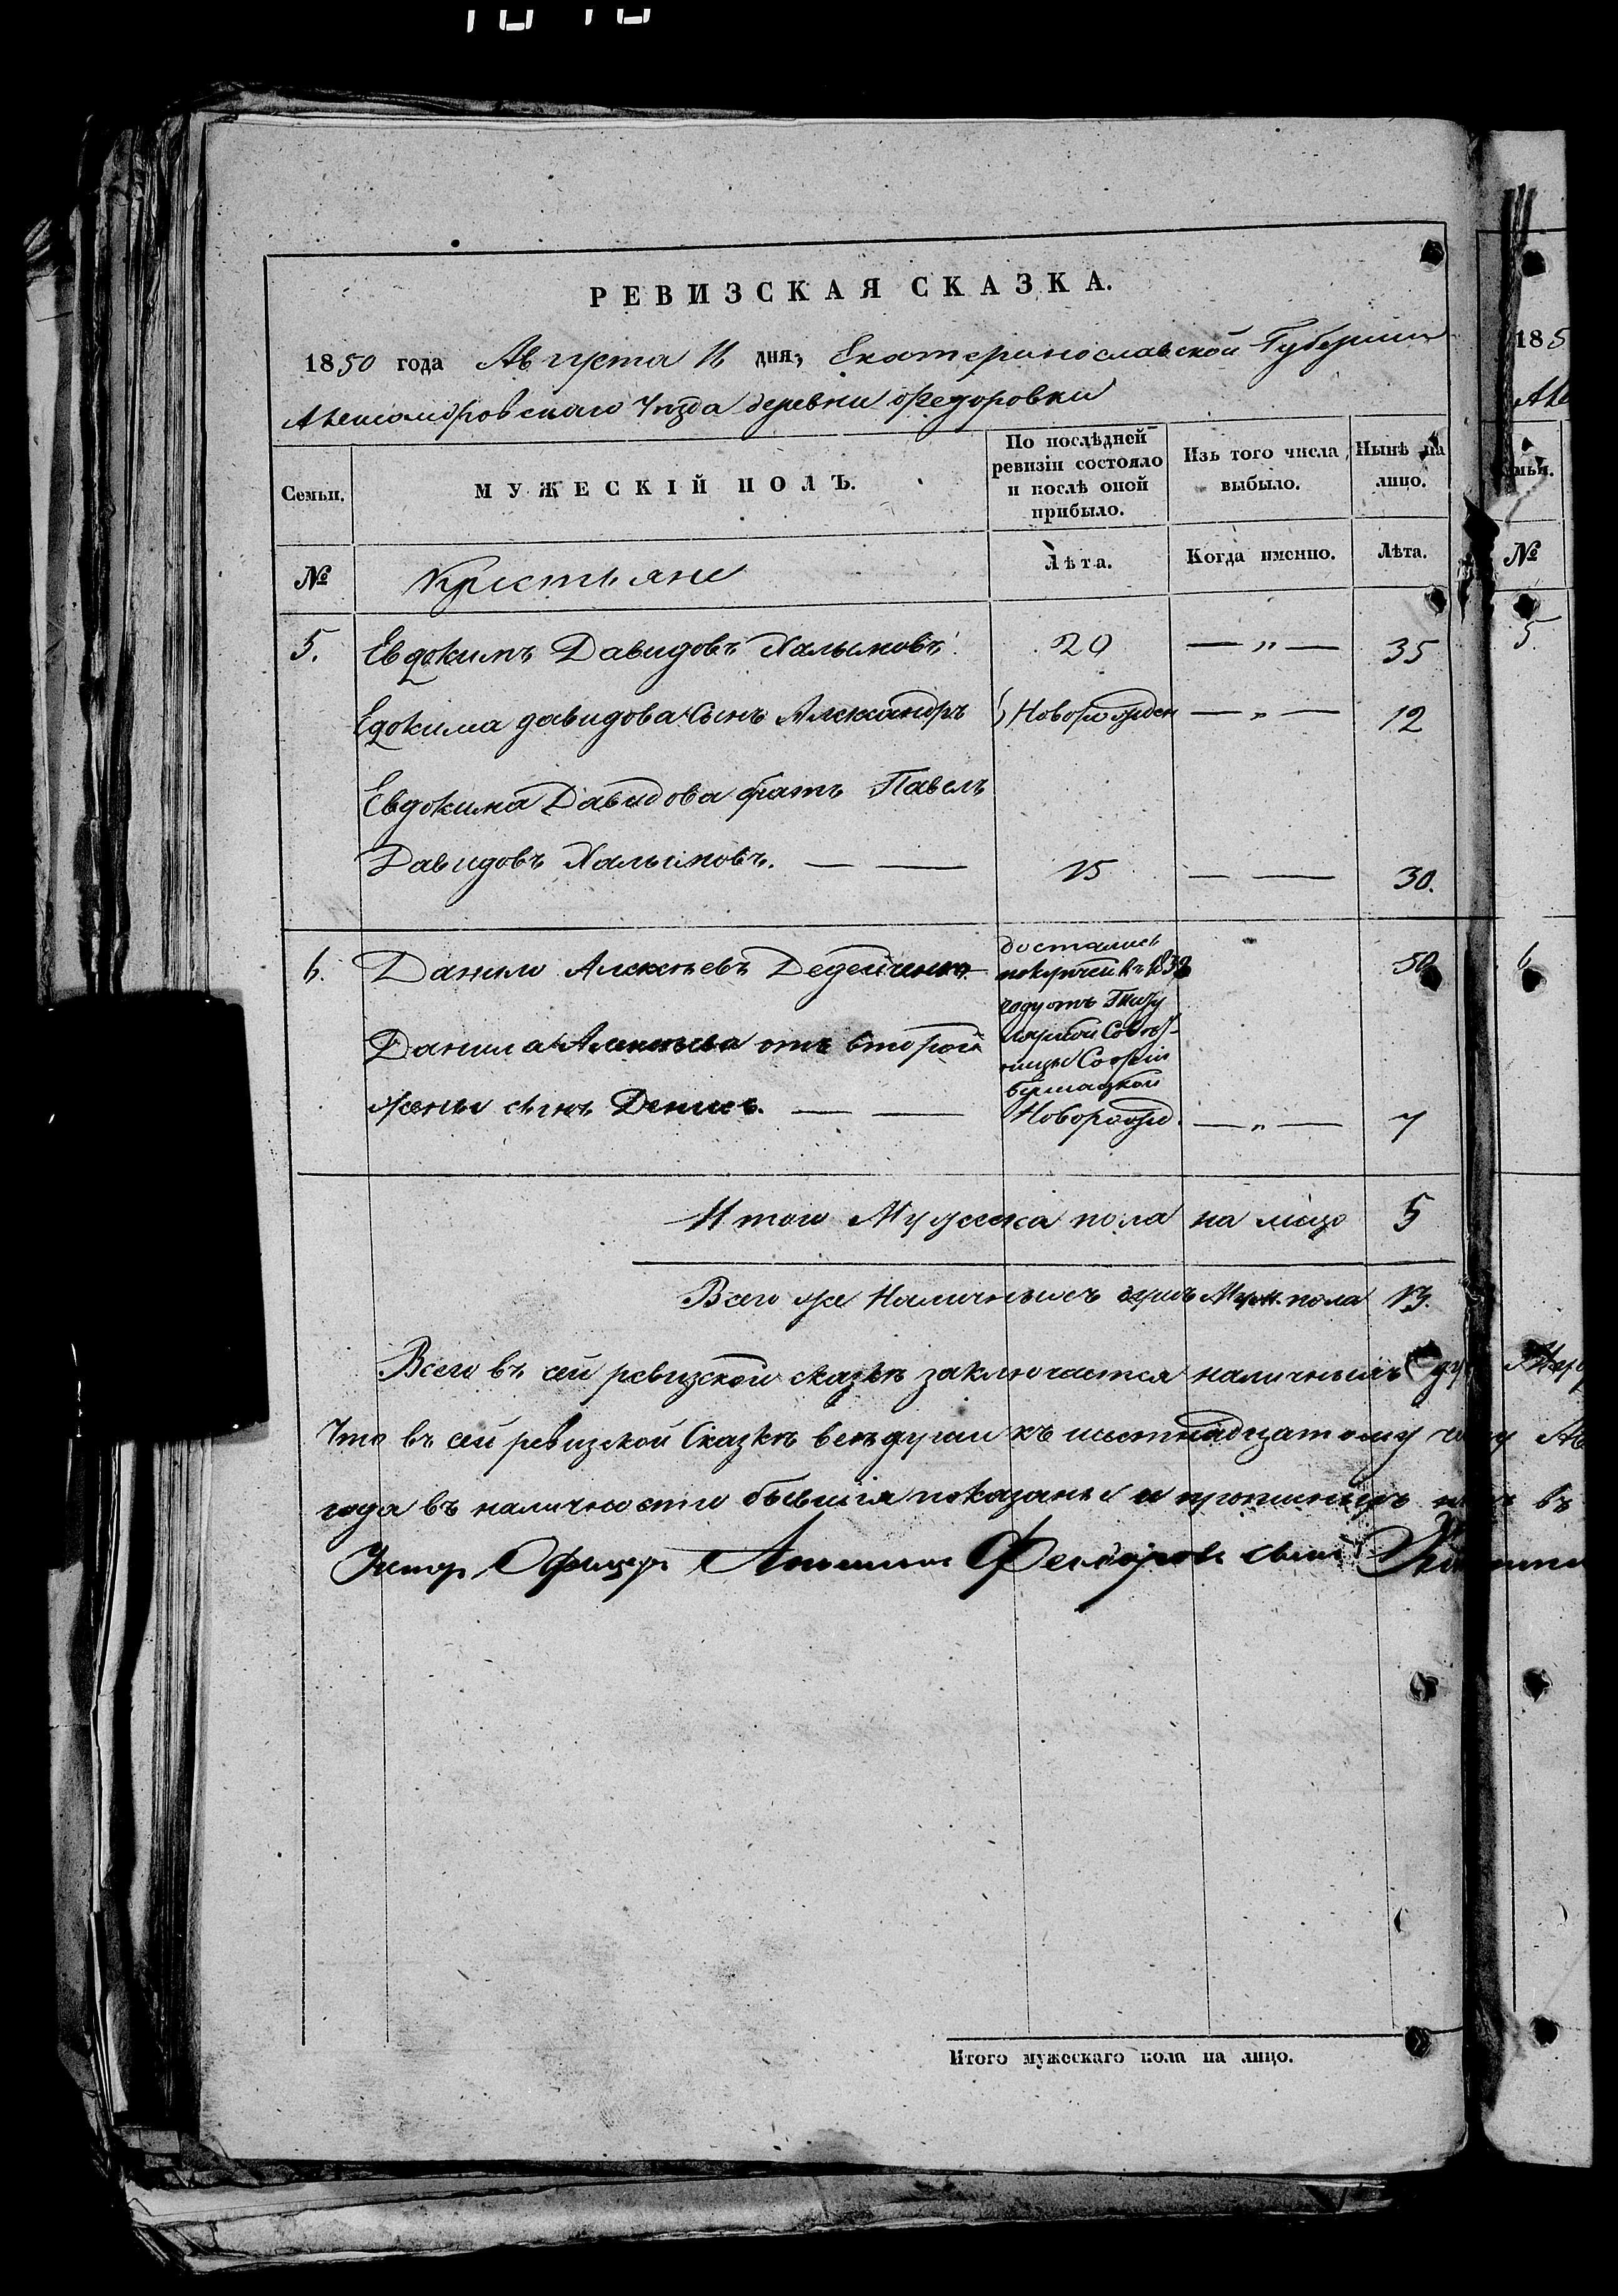 РЕВИЗСКАЯ СКАЗКА.
1850 года Августа 16 дня, Екатеринославской Губернии
Александровскаго Уѣзда деревни Федоровки
Семьи.
МУЖЕСКІЙ ПОЛЪ.
По послѣдней ревизіи состояло и послѣ оной прибыло.
Изъ того числа выбыло.
Нынѣ на лицо.
№
Крестьяне
Лѣта.
Когда именно.
Лѣта.
5. Евдокимъ Давидовъ Халымовъ 20 — „ — 35
Едокима давидова Сынъ Александръ Новорожден — „ — 12
Евдокима Давидова братъ Павелъ
Давидовъ Халымовъ. — — 15 — — 30.
6. Данило Алексѣевъ 50
достались
покупкой въ
году отъ Титу
лярной Совѣт
ницы Софіи
Данила Алексѣева отъ второй
жены сынъ Денисъ. — — Новорожд. — „ — 7
Итого Мужеска пола на лицо 5
Всего же Наличныхъ душъ Муж. пола 13.
Всего въ сей ревизской сказкѣ заключается наличныхъ
Что въ сей ревизской Сказкѣ всѣ души къ шестнадцатому
года въ наличности бывшія показаны и
Унтер Офицер Федоров сын
Итого мужескаго пола на лицо.
185
№
5
6